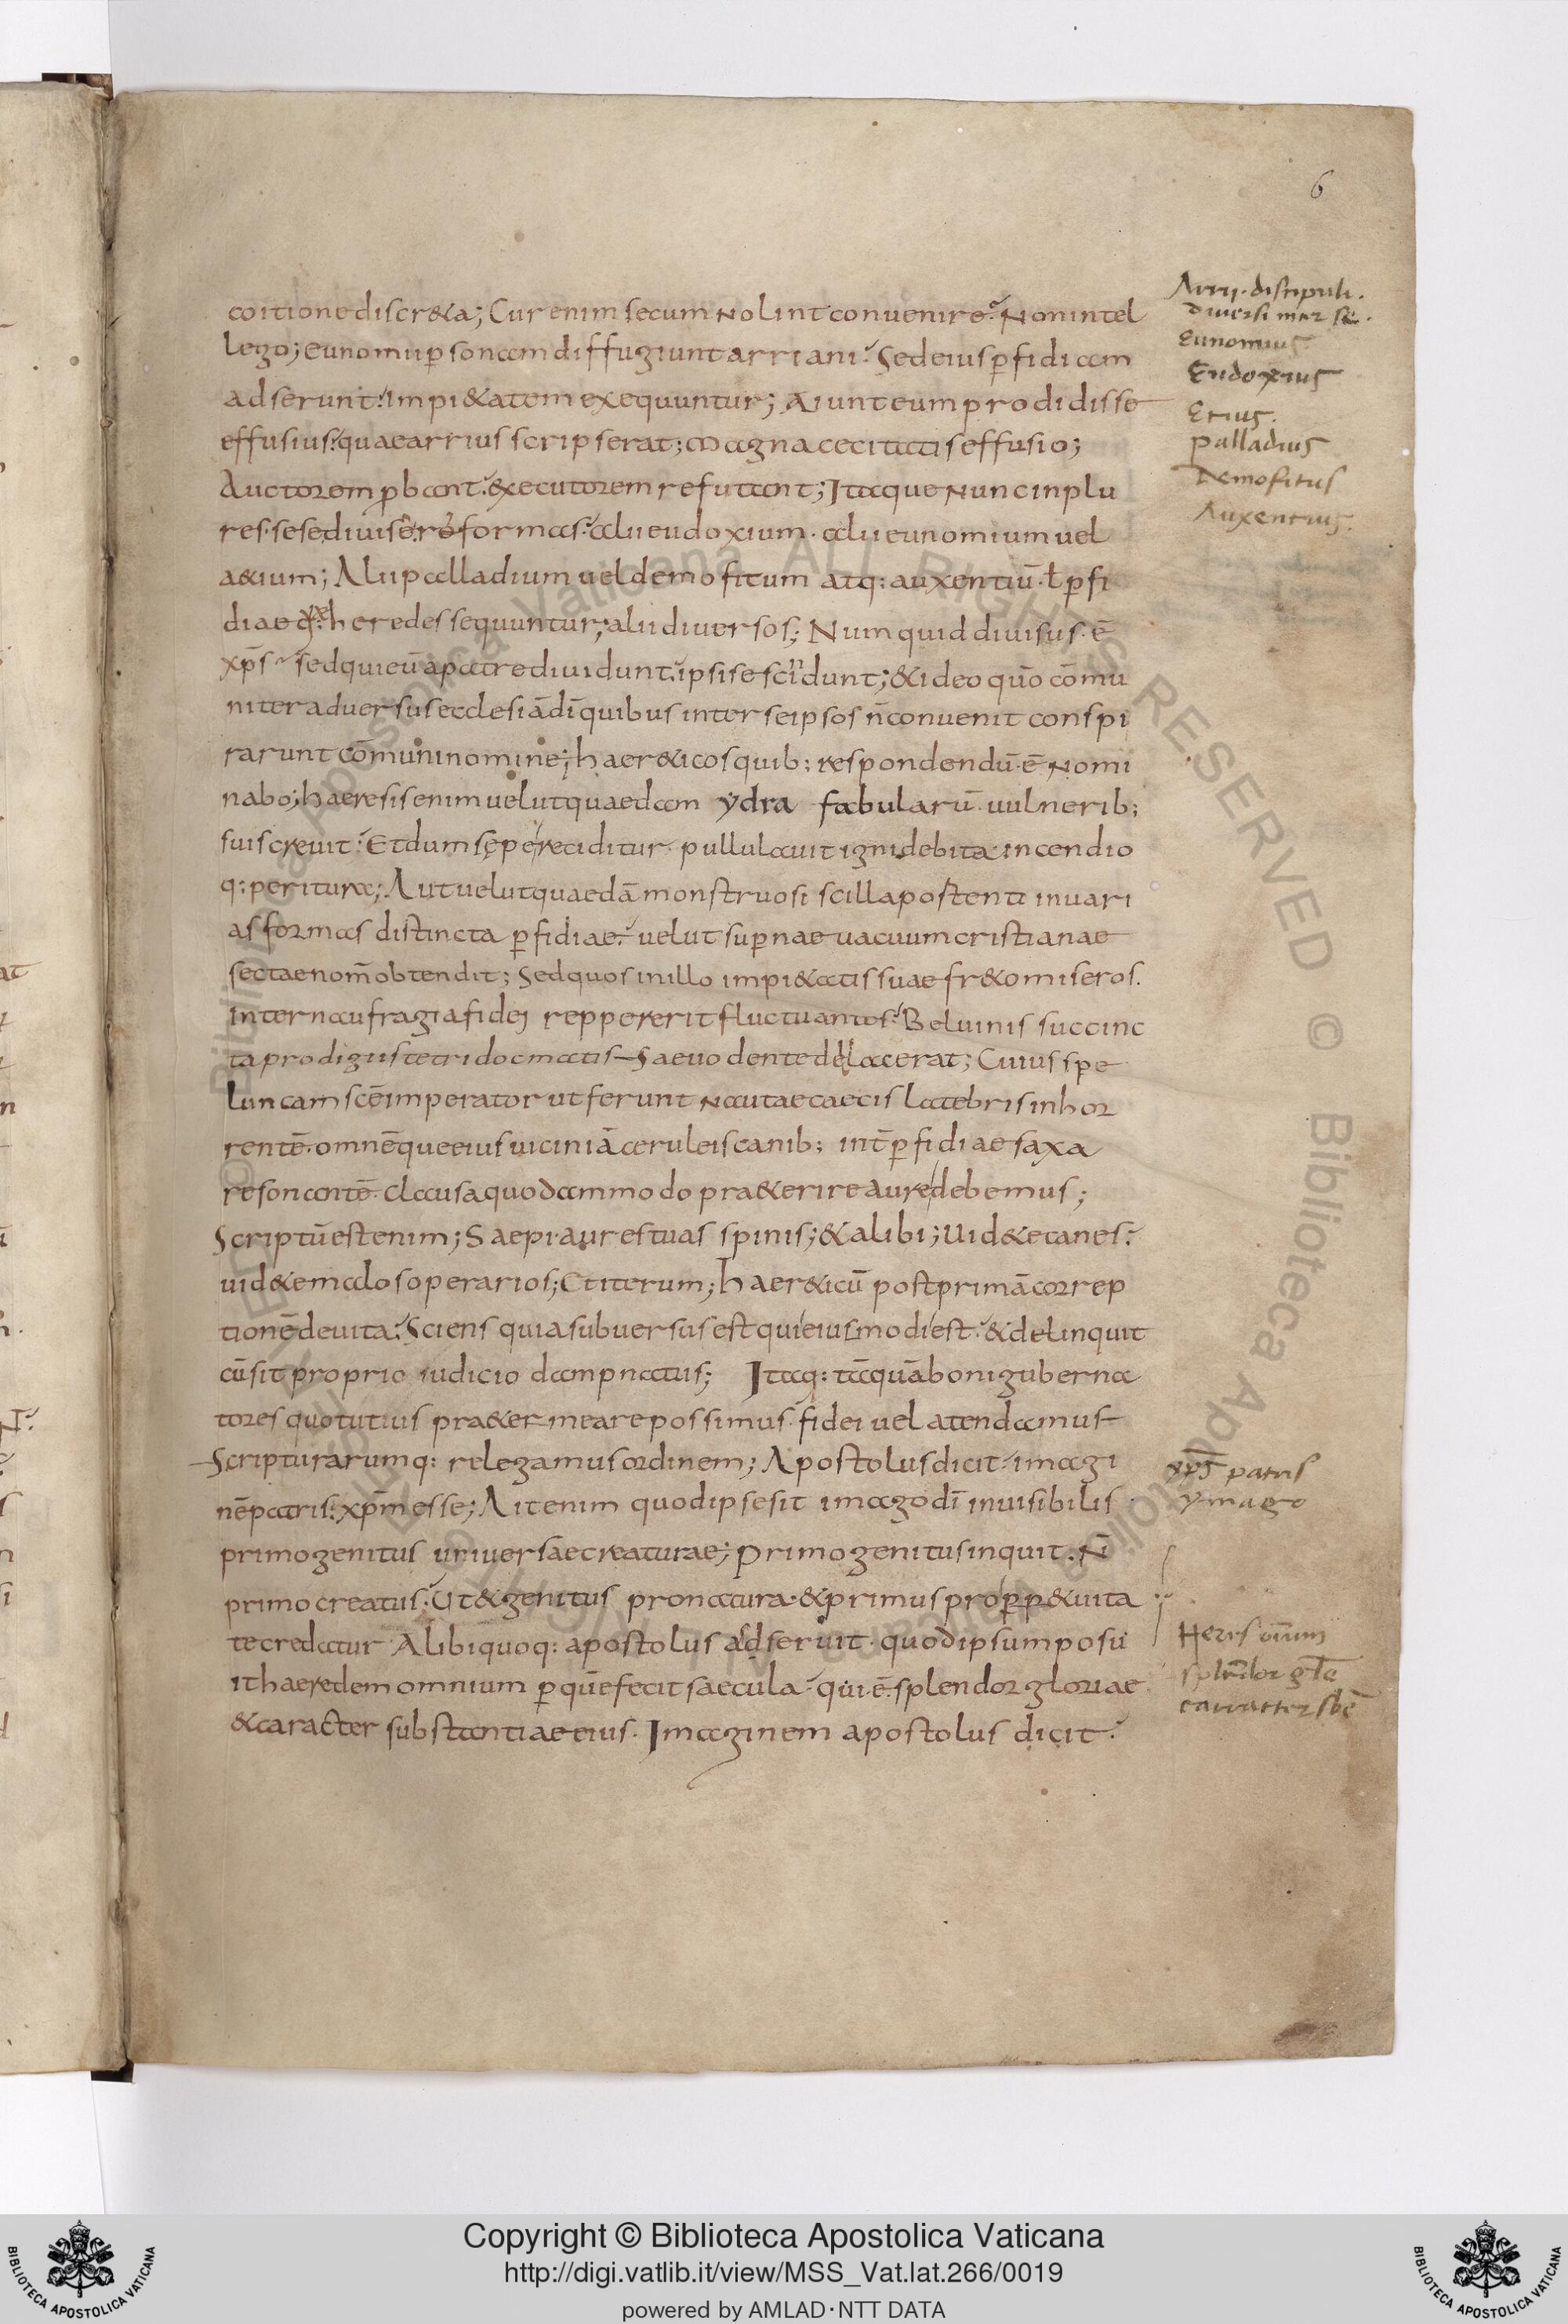 6
coitione discr&a; Cur enim secum nolint convenire? Non intel
lego; eunomii p̄sonam diffugiunt arriani? Sed eius p̄fidiam
adserunt. Impi&atem exequuntur; Aiunt eum prodidisse
effusius. quae arrius scripserat; Magna cecitatis effusio;
Auctorem p̄bant. executorem refutant; Itaque nunc in plu
res. sese divisere formas. alii eudoxium. alii eunomium vel
a&ium; Alii palladium vel demofitum atq: auxentiū. ł p̄fi
diae heredes sequuntur; alii diversos; Numquid divisus. ē
xp̄s sed qui eū a patre dividunt. ipsi se scindunt; & ideo qūo cōmu
niter adversus ecclesiā dī quibus inter se ipsos n̄ convenit conspi
rarunt cōmuni nomine; haer&icos quib; respondendū. ē nomi
nabo; haeresis enim velut quaedam ydra fabularū. vulnerib;
suis crevit. Et dum sępe reciditur. pullulavit igni debita incendio
q: peritura; Aut velut quaedā monstruosi scilla postenti in vari
as formas distincta p̄fidiae. velut sup̄nae vacuum cristianae
sectae nom̄ obtendit; Sed quos in illo impi&atis suae fr&o miseros.
inter naufragia fidei reppererit fluctuantes. Beluinis succinc
ta prodigiis tetri docmatis saevo dente delacerat; Cuius spe
luncam scē imperator ut ferunt nautae caecis latebris inhor
rentē. omnēque eius viciniā ceruleis canib; int̄ p̄fidiae saxa
resonantē. clausa quodammodo pra&erire aure debemus;
Scriptū est enim; Saepi aures tuas spinis; & alibi; Vid&e canes.
vid&e malos operarios; Et iterum; haer&icū post primā correp
tionē devita. Sciens quia subversus est qui eiusmodi est. & delinquit
cū sit proprio iudicio dampnatus; Itaq: tāquā boni guberna
tores quo tutius pra&ermeare possimus. fidei vel atendamus
Scripturarumq: relegamus ordinem; Apostolus dicit. imagi
nē patris. xp̄m esse; Ait enim quod ipse sit imago dī invisibilis
primogenitus universae creaturae; Primogenitus inquit. N̄
primo creatus. Ut & genitus pro natura. & primus pro p̄p&uita
te credatur. Alibi quoq: apostolus adseruit. quod ipsum posu
it haeredem omnium p̄ quē fecit saecula. qui. ē. splendor gloriae
& caracter substantiae eius. Imaginem apostolus dicit.
Arrii. discipuli.
diversi inter se.
Eunomius
Eudoxius
Etius.
Palladius
Demofitus
Auxentius.
xp̄s patris
ymago
Heres om̄ium
splendor gl̄e
carracter sb̄e
Copyright © Biblioteca Apostolica Vaticana
http://digi.vatlib.it/view/MSS_Vat.lat.266/0019
powered by AMLAD·NTT DATA
BIBLIOTECA APOSTOLICA VATICANA
BIBLIOTECA APOSTOLICA VATICANA